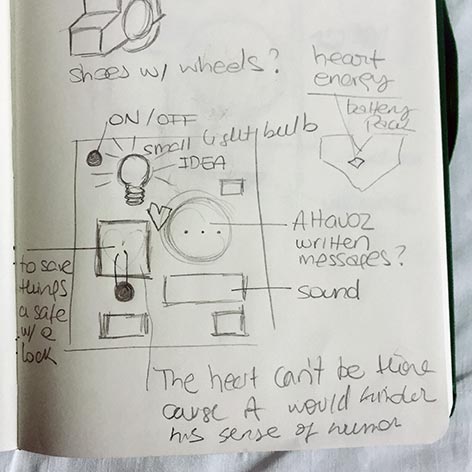 shoes w/ wheels?
heart
energy
battery
pack
ON/OFF
small light bulb
IDEA
A Havoz
written
messages?
sound
to save
things
a safe
w/ a
lock
The heart can't be there
cause A would hinder
his sense of humor